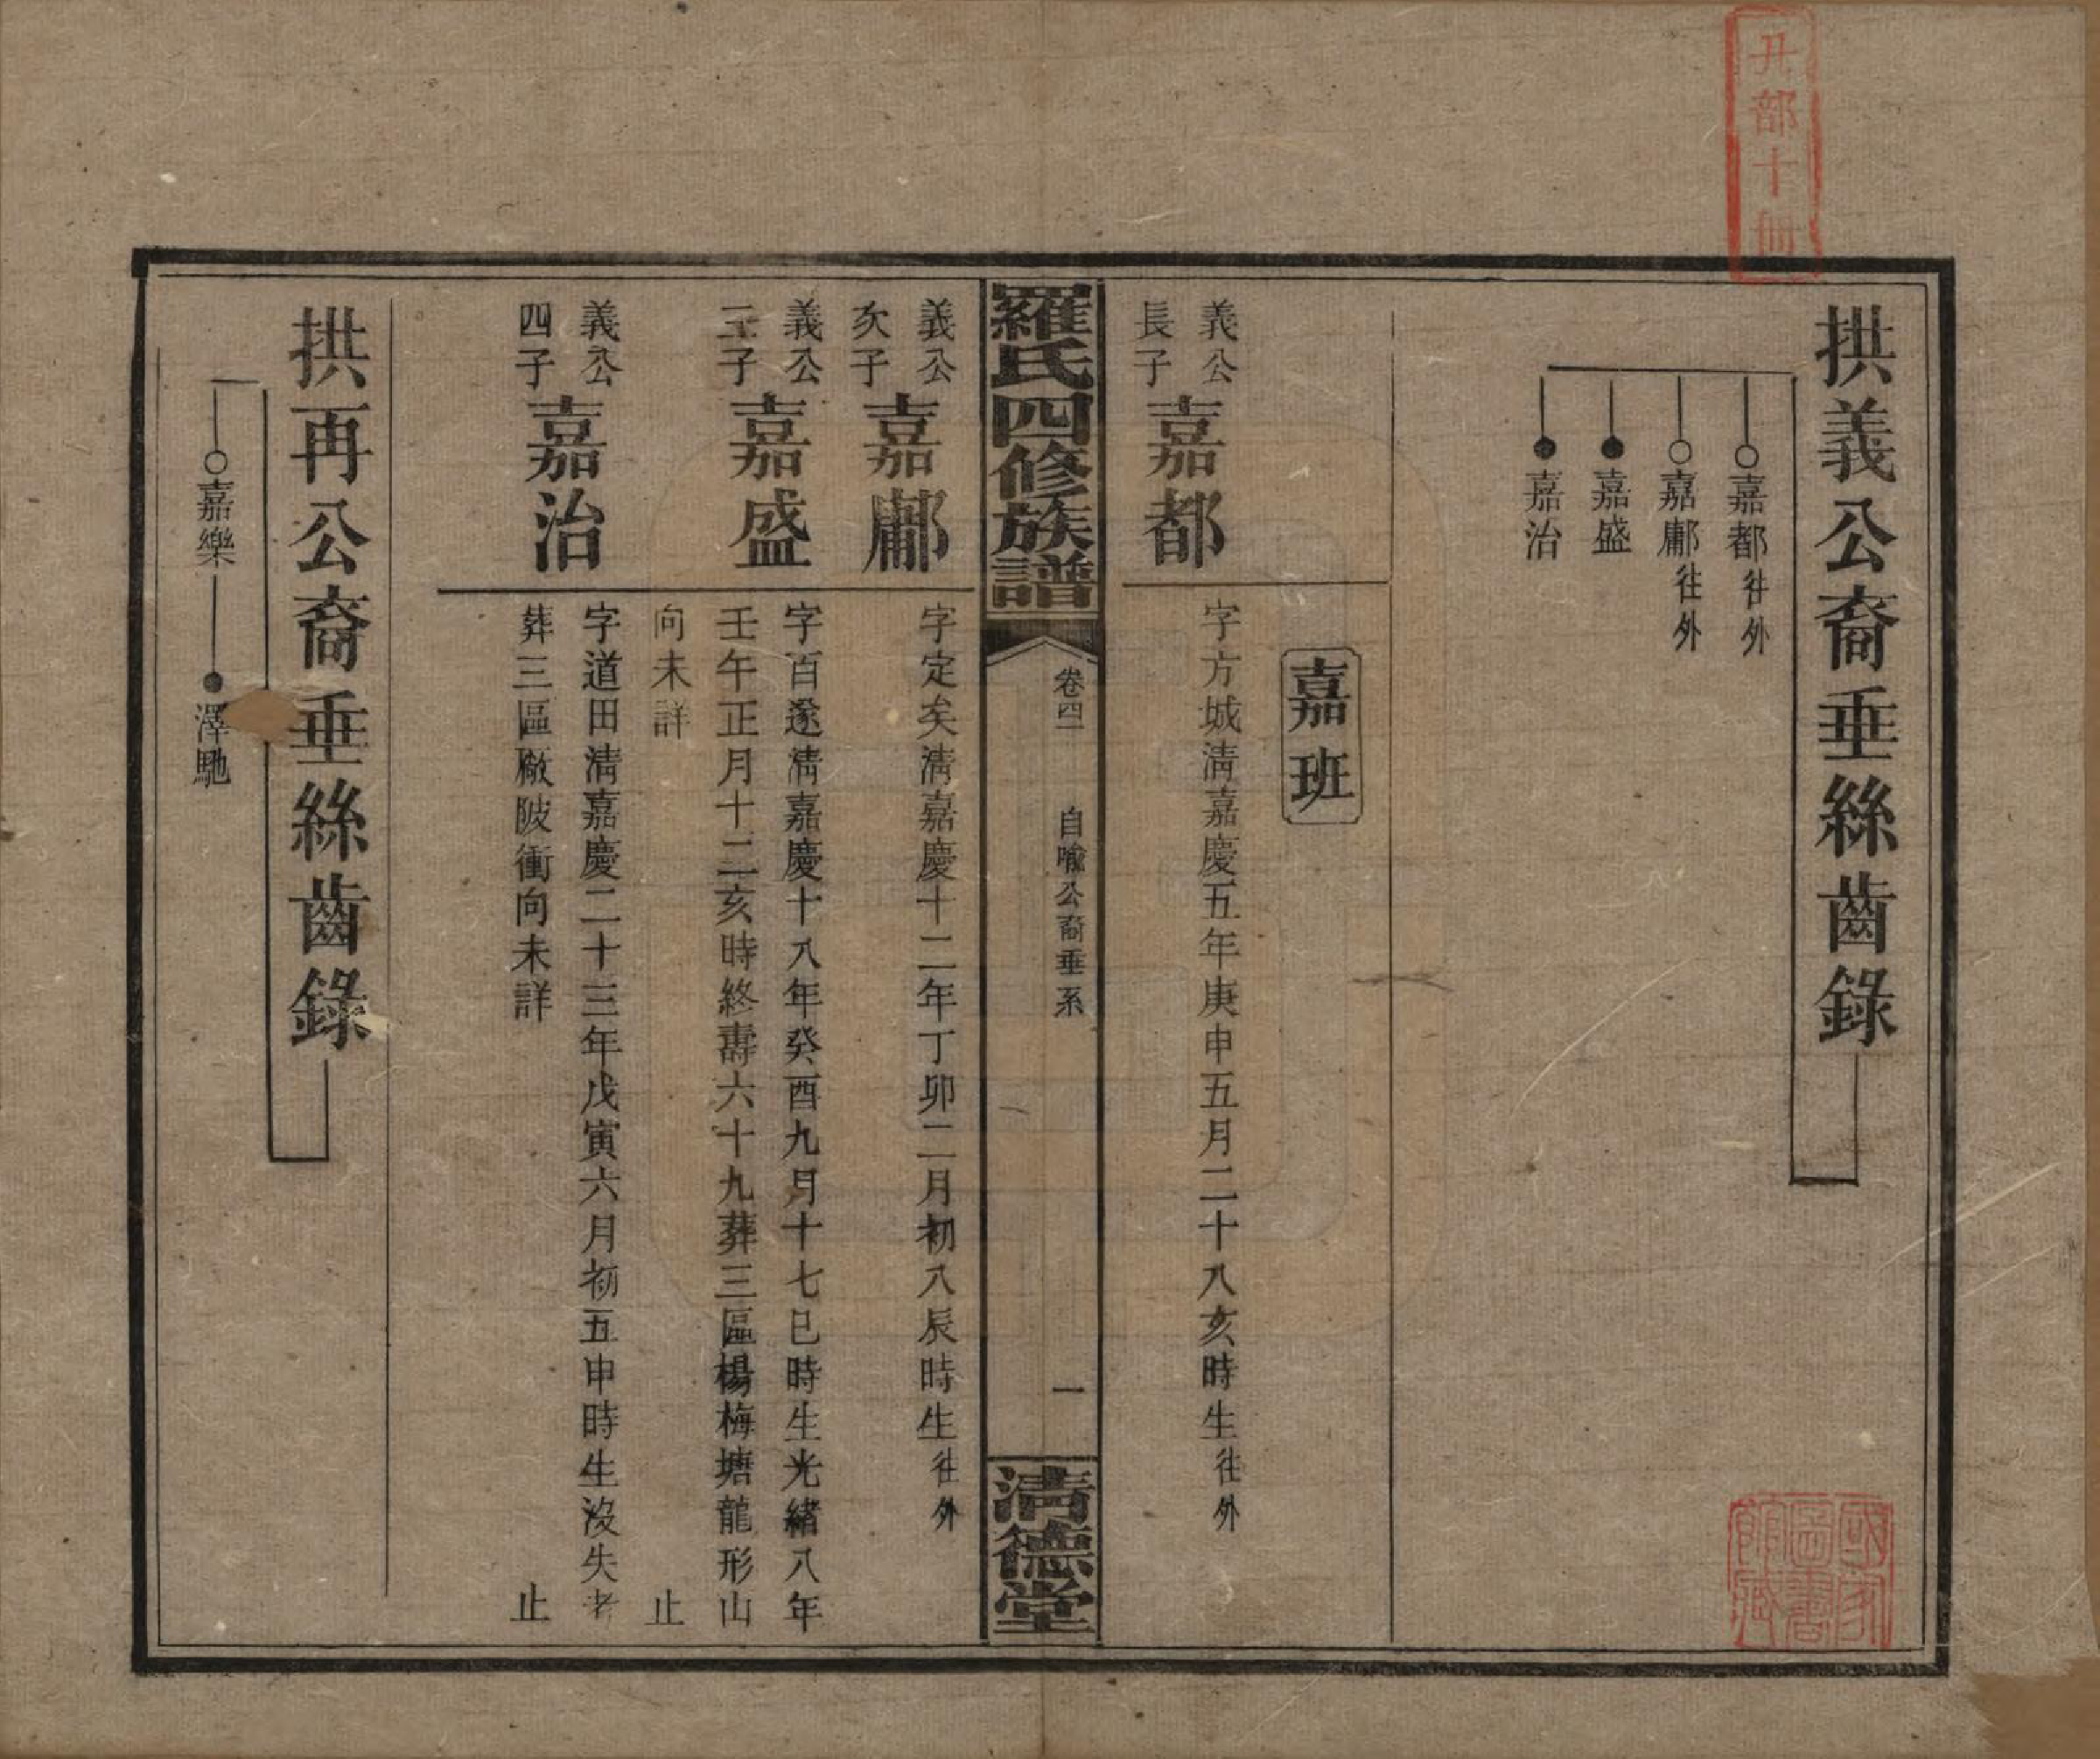 拱義公裔垂絲齒錄
嘉都往外
嘉鄘往外
嘉盛
嘉治
嘉班
義公
長子
嘉都
字方城清嘉慶五年庚申五月二十八亥時生往外
羅氏四修族譜
卷四
自喩公裔垂系
一
清德堂
義公
次子
嘉鄘
字定矣清嘉慶十二年丁卯二月初八辰時生往外
義公
三子
嘉盛
字百遂清嘉慶十八年癸酉九月十七巳時生光緒八年
壬午正月十二亥時終壽六十九葬三區楊梅塘龍形山
向未詳
止
義公
四子
嘉治
字道田清嘉慶二十三年戊寅六月初五申時生沒失考
葬三區廠陂衝向未詳
止
拱再公裔垂絲齒錄
嘉樂
澤馳
國家
圖書
館藏